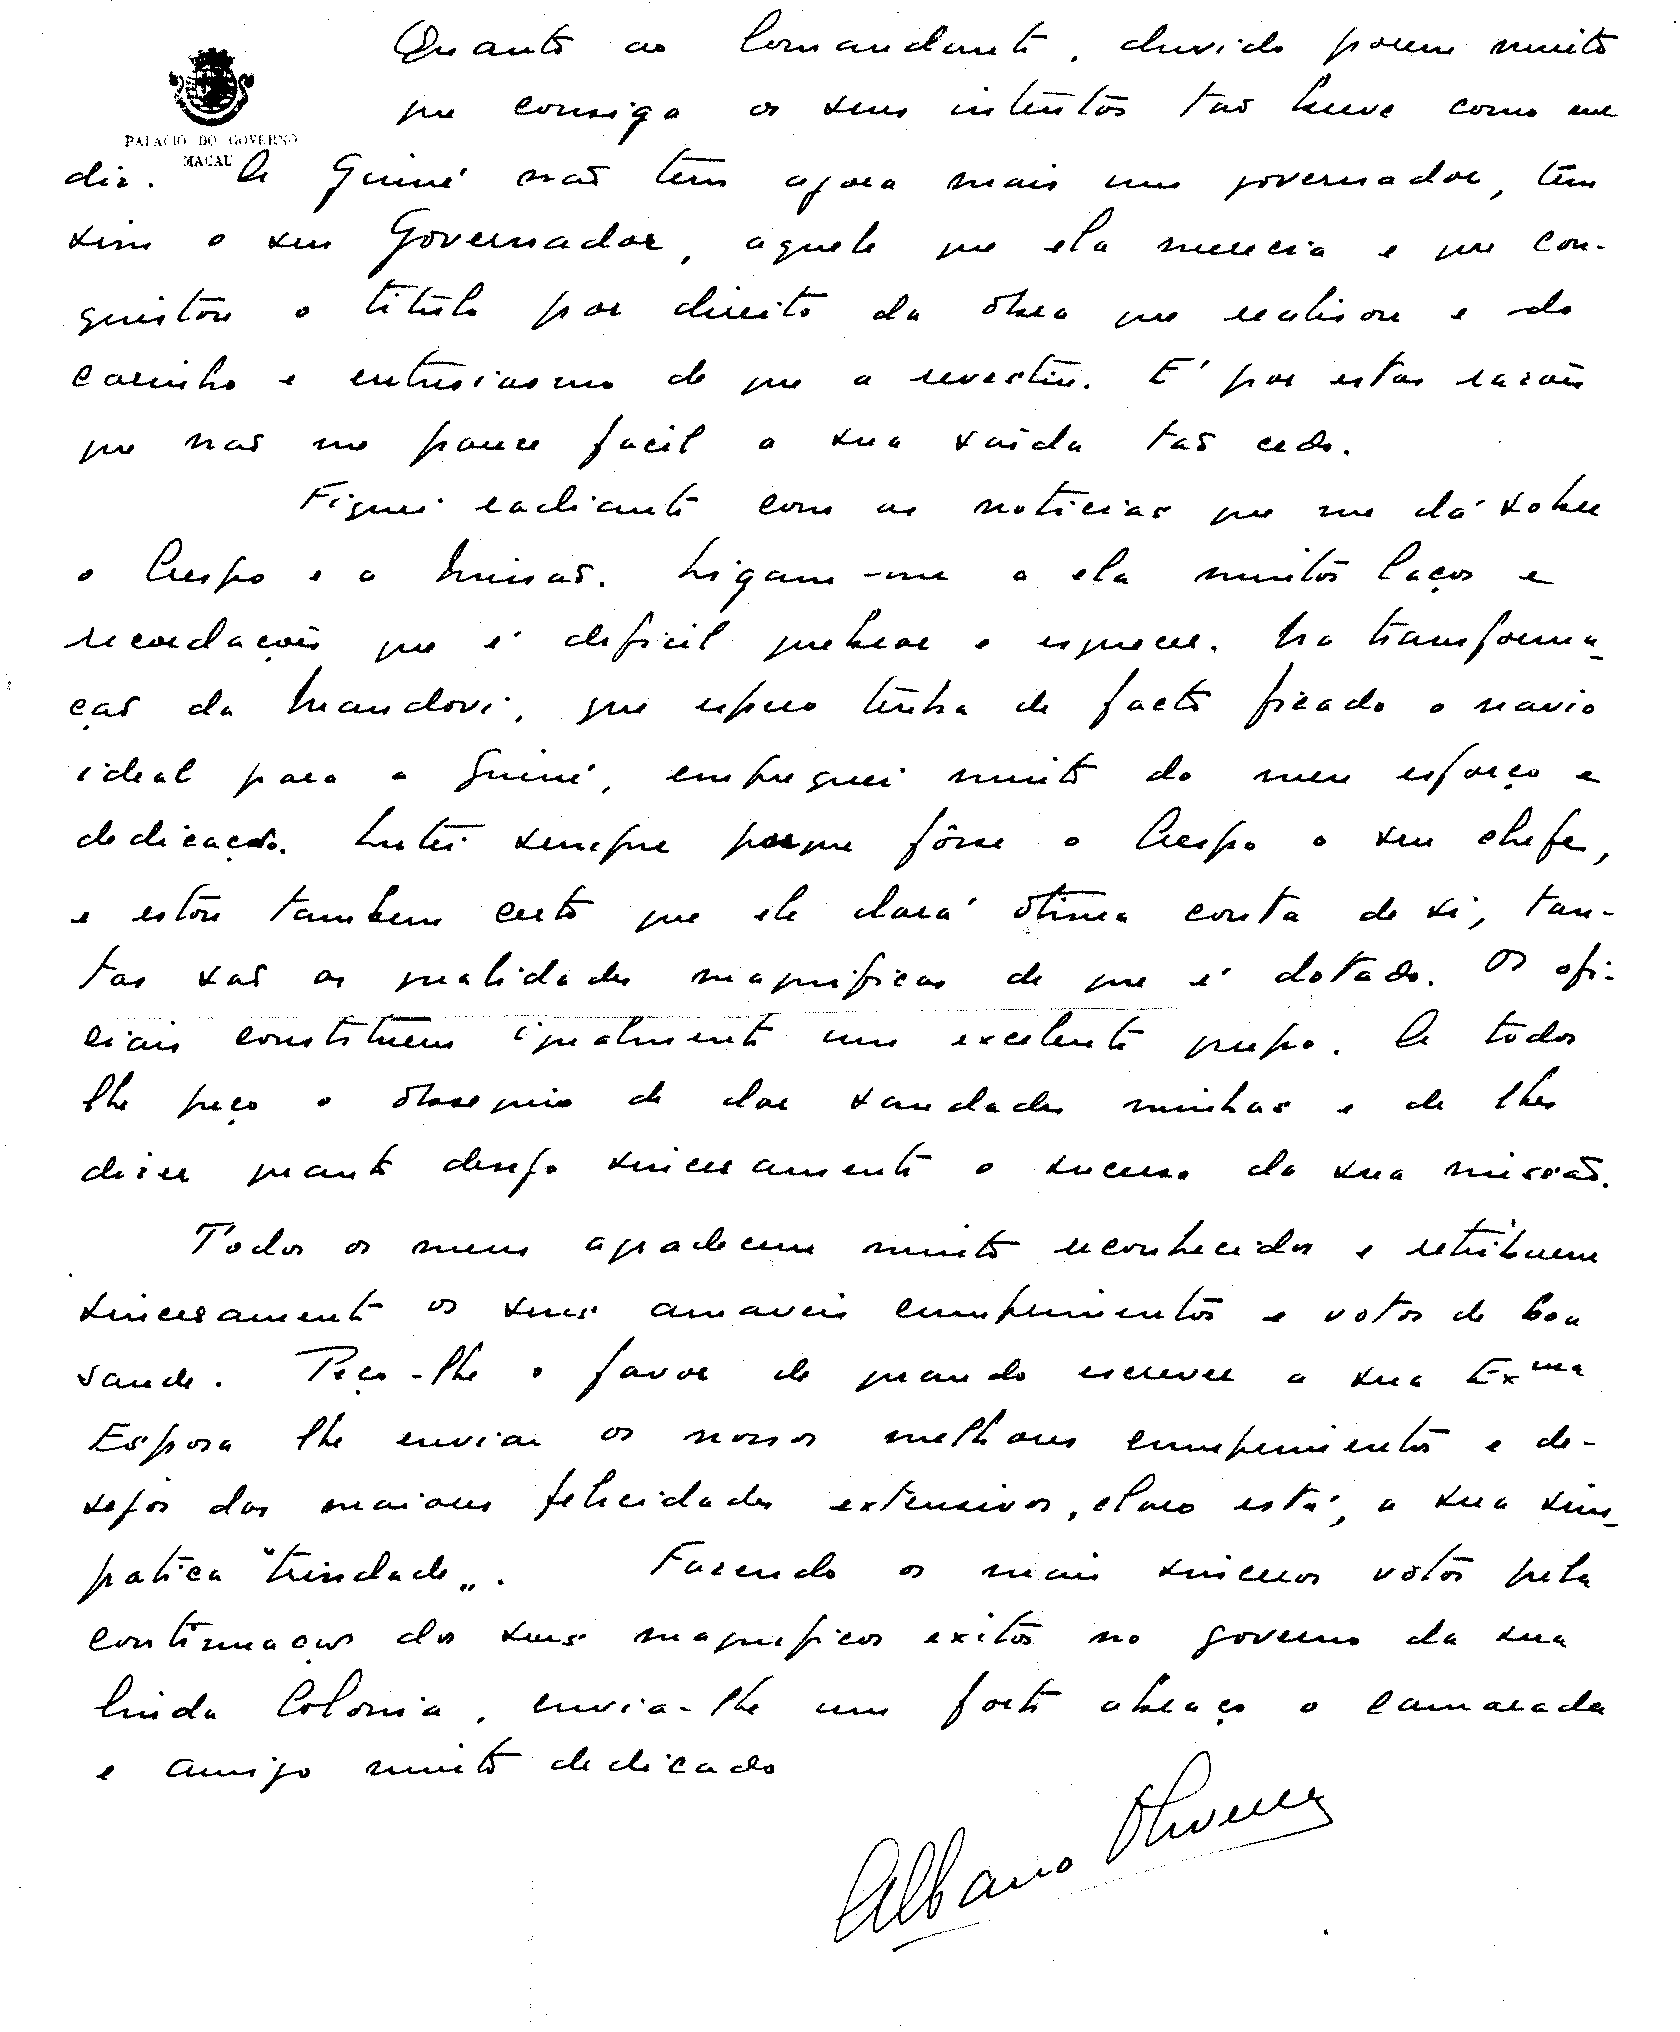 PALACIO DO GOVERNO
MACAU
Quanto ao Comandante, duvido porem muito
que consiga os seus intentos tão breve como me
diz. A Guiné não tem agora mais um governador, tem
sim o seu Governador, aquele que ela merecia e que con-
quistou o titulo por direito da obra que realisou e do
carinho e entusiasmo de que a revestiu. E' por estas razões
que não me parece facil a sua saída tão cedo.
Fiquei radiante com as noticias que me dá sobre
o Crespo e a Missão. Ligam-me a ela muitos laços e
recordações que é dificil quebrar e esquecer. Na transforma-
ção da Mandovi, que espero tenha de facto ficado o navio
ideal para a Guiné, empreguei muito do meu esforço e
dedicação. Lutei sempre porque fôsse o Crespo o seu chefe,
e estou tambem certo que ele dará otima conta de si, tan-
tas são as qualidades magnificas de que é dotado. Os ofi-
ciais constituem igualmente um excelente grupo. A todos
lhe peço o obsequio de dar saudades minhas e de lhes
dizer quanto desejo sinceramente o sucesso da sua missão.
Todos os meus agradecem muito reconhecidos e retribuem
sinceramente os seus amaveis cumprimentos e votos de boa
saude. Peço-lhe o favor de quando escrever a sua Exma
Esposa lhe enviar os nossos melhores cumprimentos e de-
sejos das maiores felicidades extensivos, claro está, a sua sim-
patica "trindade„. Fazendo os mais sinceros votos pela
continuação dos seus magnificos exitos no governo da sua
linda Colonia, envia-lhe um forte abraço o camarada
e amigo muito dedicado
Albano Oliveira